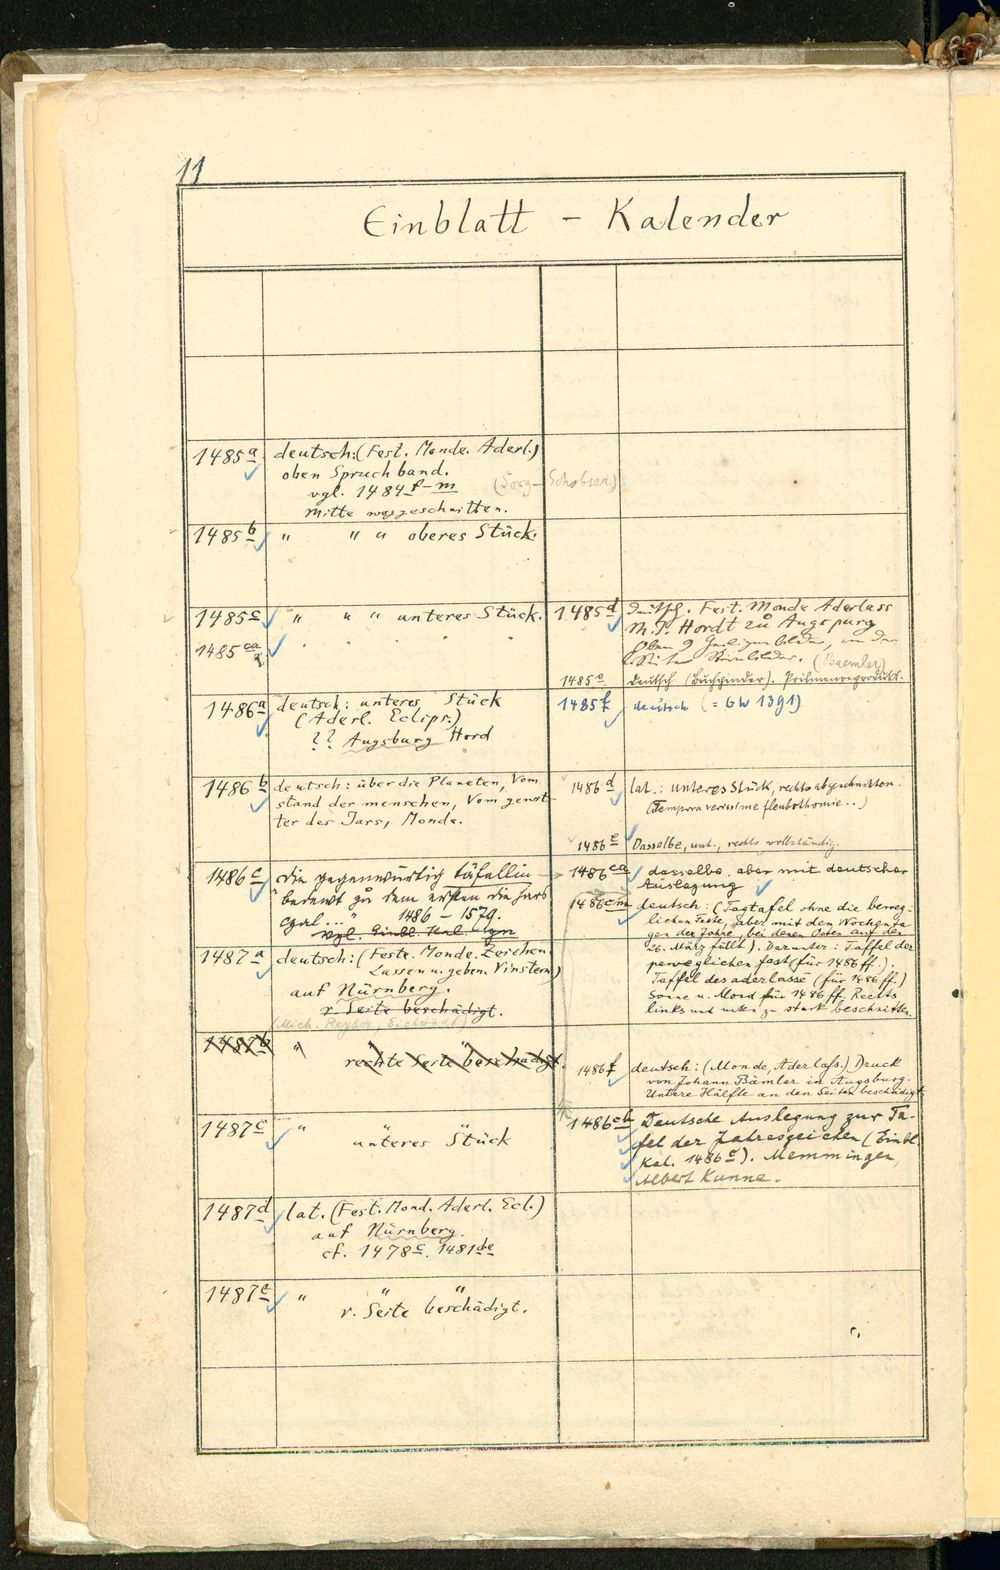 11
Einblatt - Kalender
1485a deutsch: (Fest. Monde. Aderl.)
oben Spruchband.
vgl. 1484f-m
(Sorg-Schobser)
Mitte weggeschnitten.
1485b " " " oberes Stück.
1485c " " " unteres Stück.
1485ca " " " "
1485d deutsch. Fest. Monde Aderlass
M. P. Hordt zu Augspurg
Oben 9 Heiligenbilder, in der
(Baemler)
1485e deutsch (Buchbinder).
1485f deutsch (= GW 1391)
1486a deutsch: unteres Stück
(Aderl. Eclips.)
?? Augsburg Hord
1486b deutsch: über die Planeten, Vom
stand der menschen, Vom genst-
ter des Jars, Monde.
1486d lat.: unteres Stück, rechts abgeschnitten.
(Tempora verissime fleubothomie...)
1486e Dasselbe, unt., rechts vollständig.
1486c die gegenwürtig täfellin
bedeut zu dem ersten die Jars
zal..." 1486 - 1579.
vgl. Einbl. Kal.
1486ca dasselbe, aber mit deutscher
Auslegung
1486cm deutsch: (Tagtafel ohne die beweg-
lichen Feste, aber mit den Wochenta
gen der Jahre, bei denen Ostern auf den
26. März fällt). Darunter: Taffel der
peweglichen fast (für 1486 ff.).
Taffel des aderlasse (für 1486 ff.)
Sonne u. Mond für 1486 ff. Rechts
links und unten zu stark beschnitten
1487a deutsch: (Feste. Monde. Zeichen.
Lassen u. geben. Vinstern)
auf Nürnberg.
r. Seite beschädigt.
(Mich. Reyser, Eichstädt)
1487b "
rechte Seite beschädigt.
1486f deutsch: (Monde, Aderlass.) Druck
von Johann Bämler in Augsburg.
Untere Hälfte an den Seiten beschädigt
1487c " " "
unteres Stück
1486cb Deutsche Auslegung zur Ta-
fel der Jahreszeichen (Einbl.
Kal. 1486c). Memmingen,
Albert Kunne.
1487d lat. (Fest. Mond. Aderl. Ecl.)
auf Nürnberg.
cf. 1478c, 1481de
1487e " " "
r. Seite beschädigt.